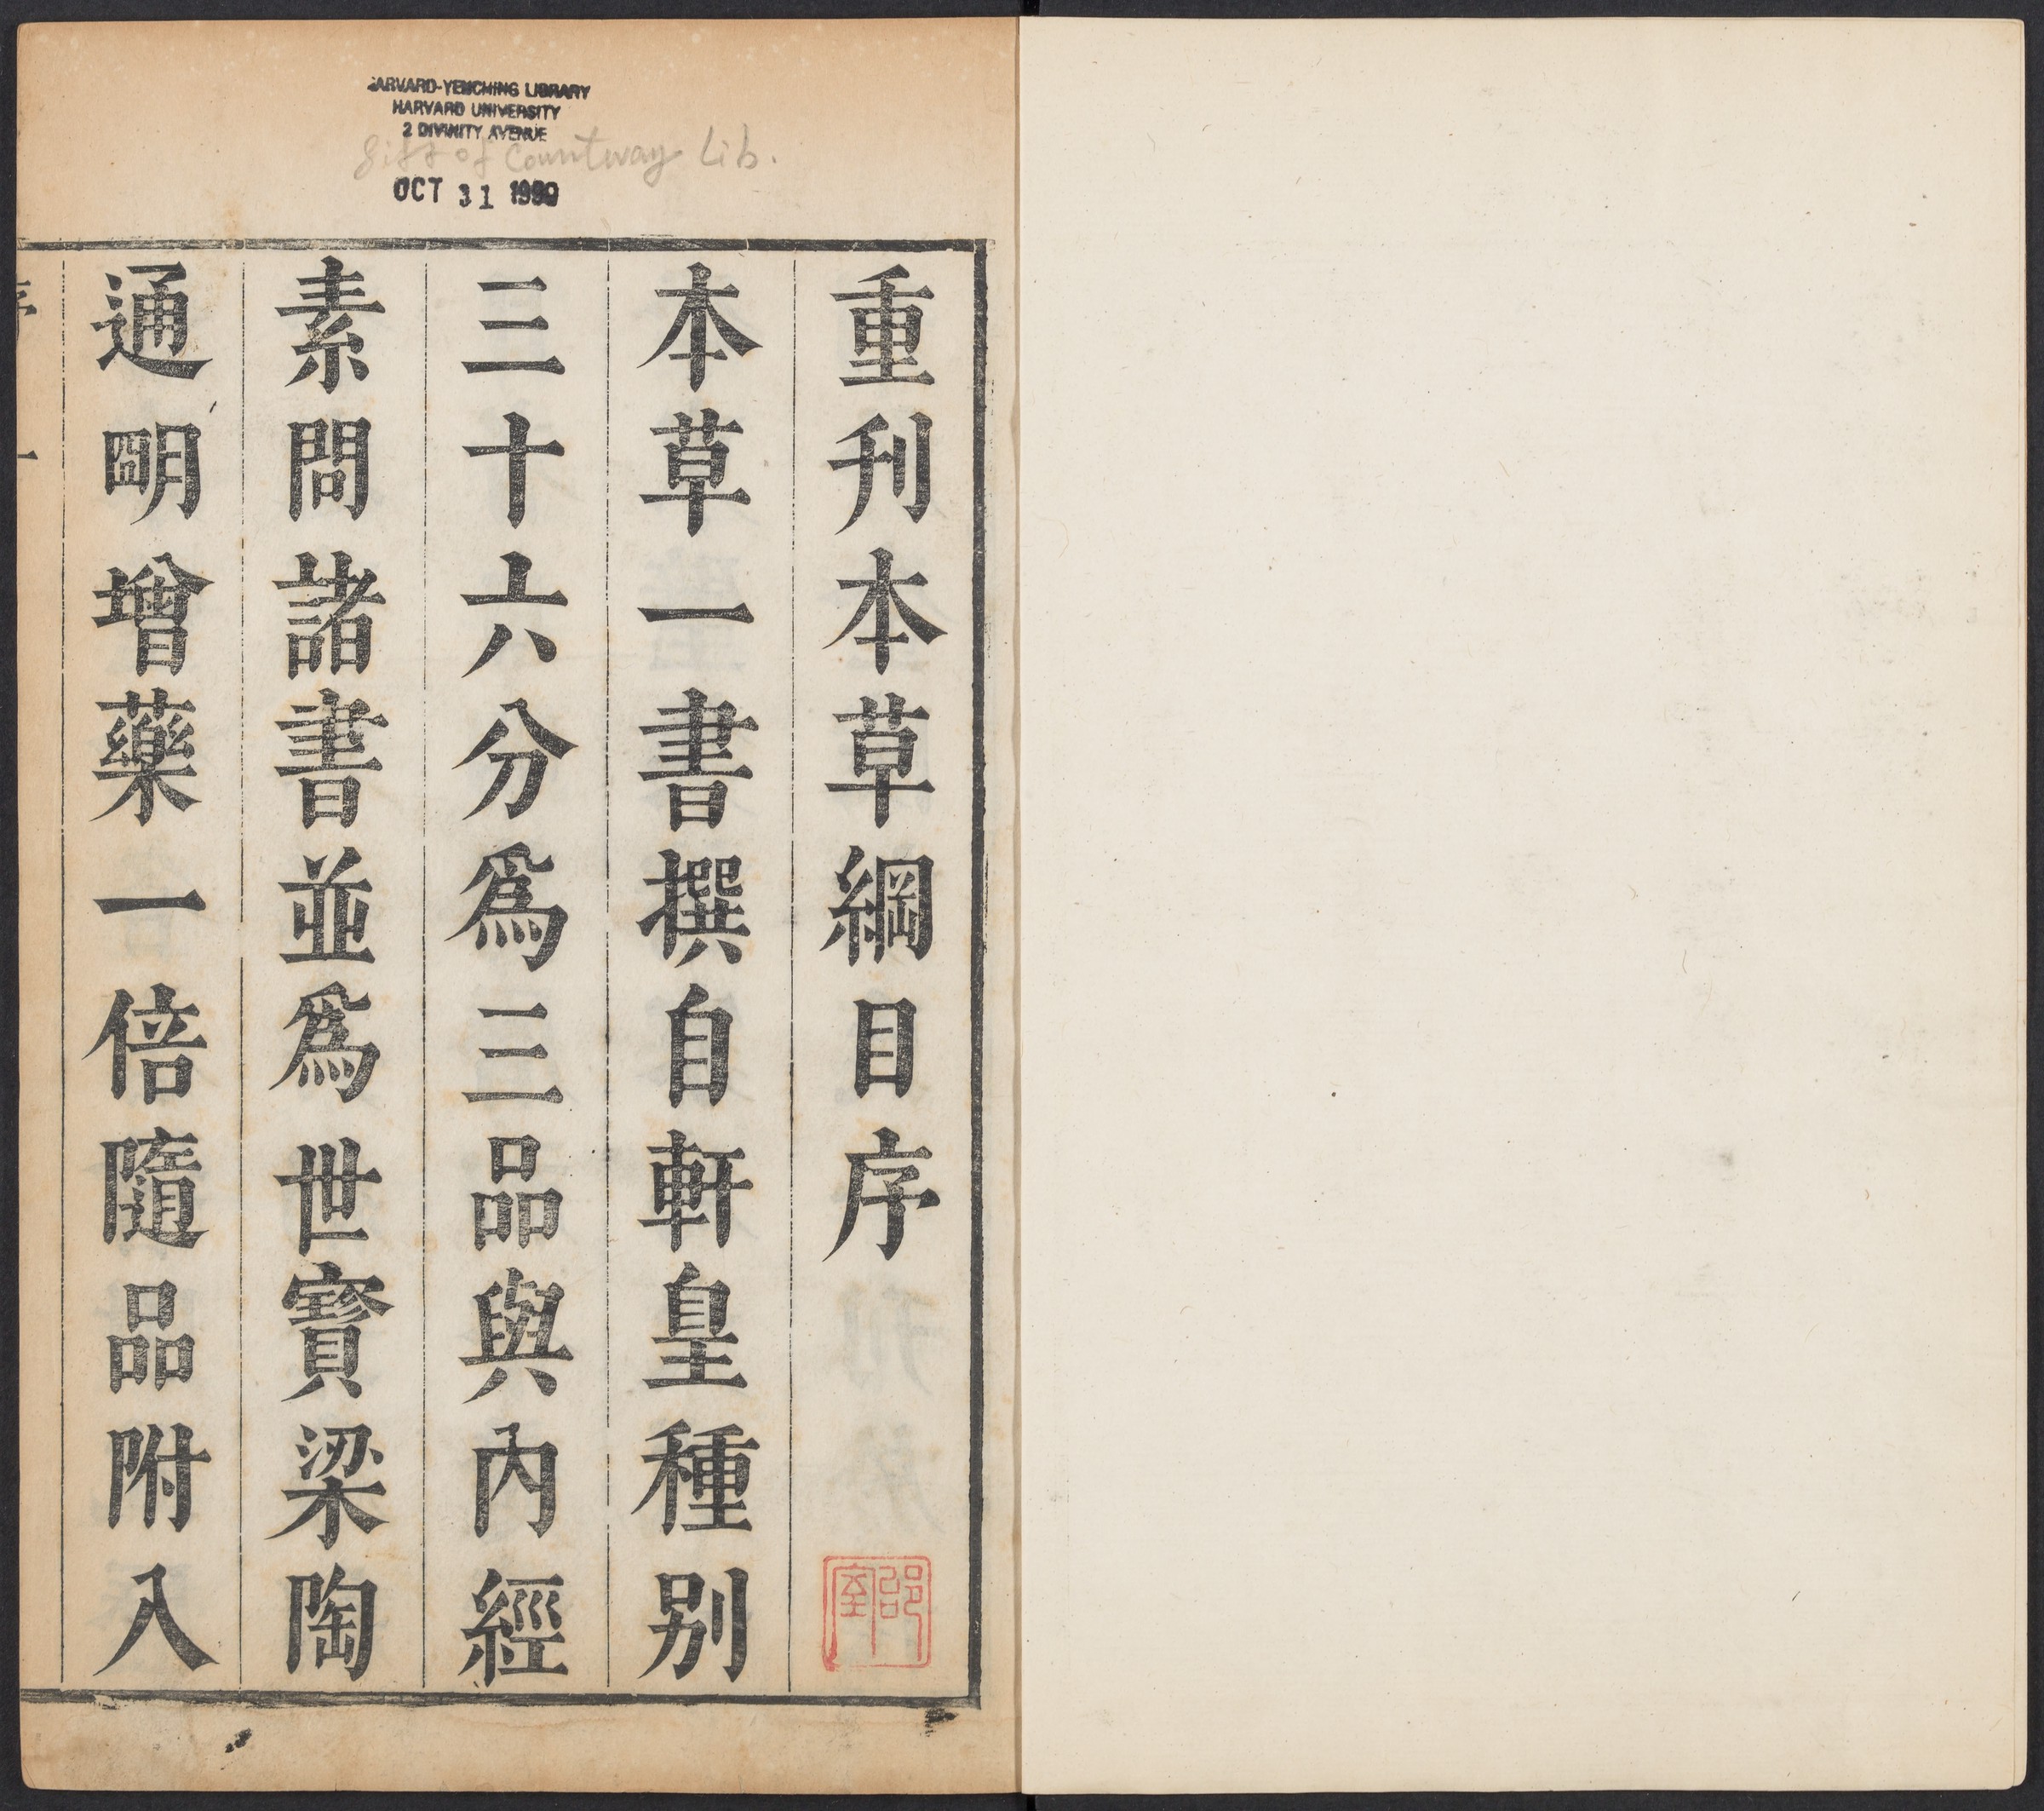 HARVARD-YENCHING LIBRARY
HARVARD UNIVERSITY
2 DIVINITY AVENUE
Gift of Countway Lib.
OCT 31 1990
重刊本草綱目序
本草一書撰自軒皇種別
三十六分爲三品與內經
素問諸書並爲世寶梁陶
通明增藥一倍隨品附入
序
一